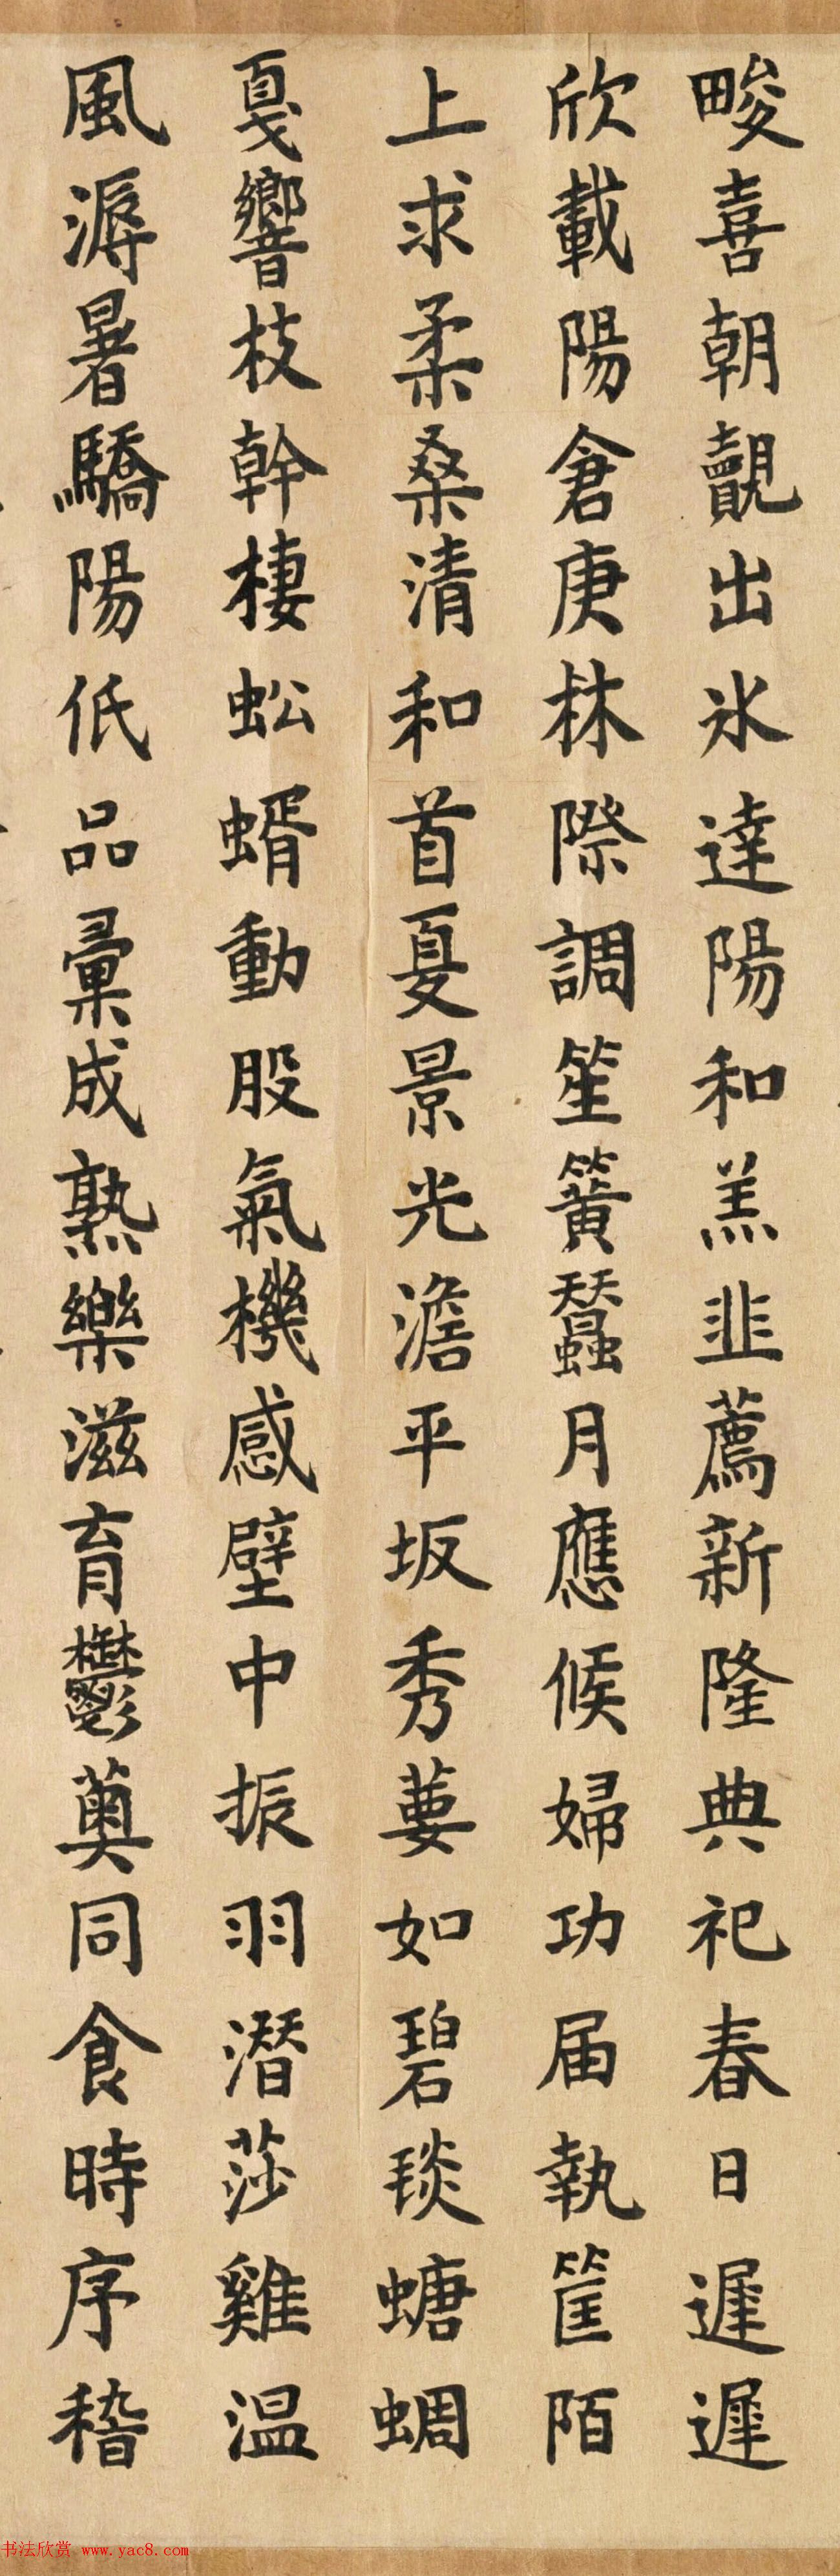 畯喜朝覿出氷達陽和羔韭薦新隆典祀春日遲遲
欣載陽倉庚林際調笙簧蠶月應候婦功届執筐陌
上求柔桑清和首夏景光澹平坂秀葽如碧琰螗蜩
戛響枝幹棲蚣蝑動股氣機感壁中振羽潛莎雞温
風溽暑驕陽低品彙成熟樂滋育鬱薁同食時序稽
书法欣赏 www.yac8.com